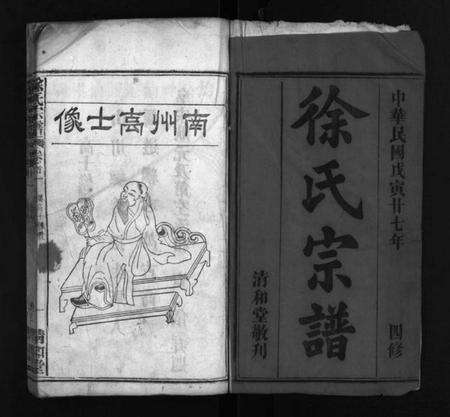 中華民國戊寅廿七年
四修
徐氏宗譜
清和堂敬刊
南州高士像